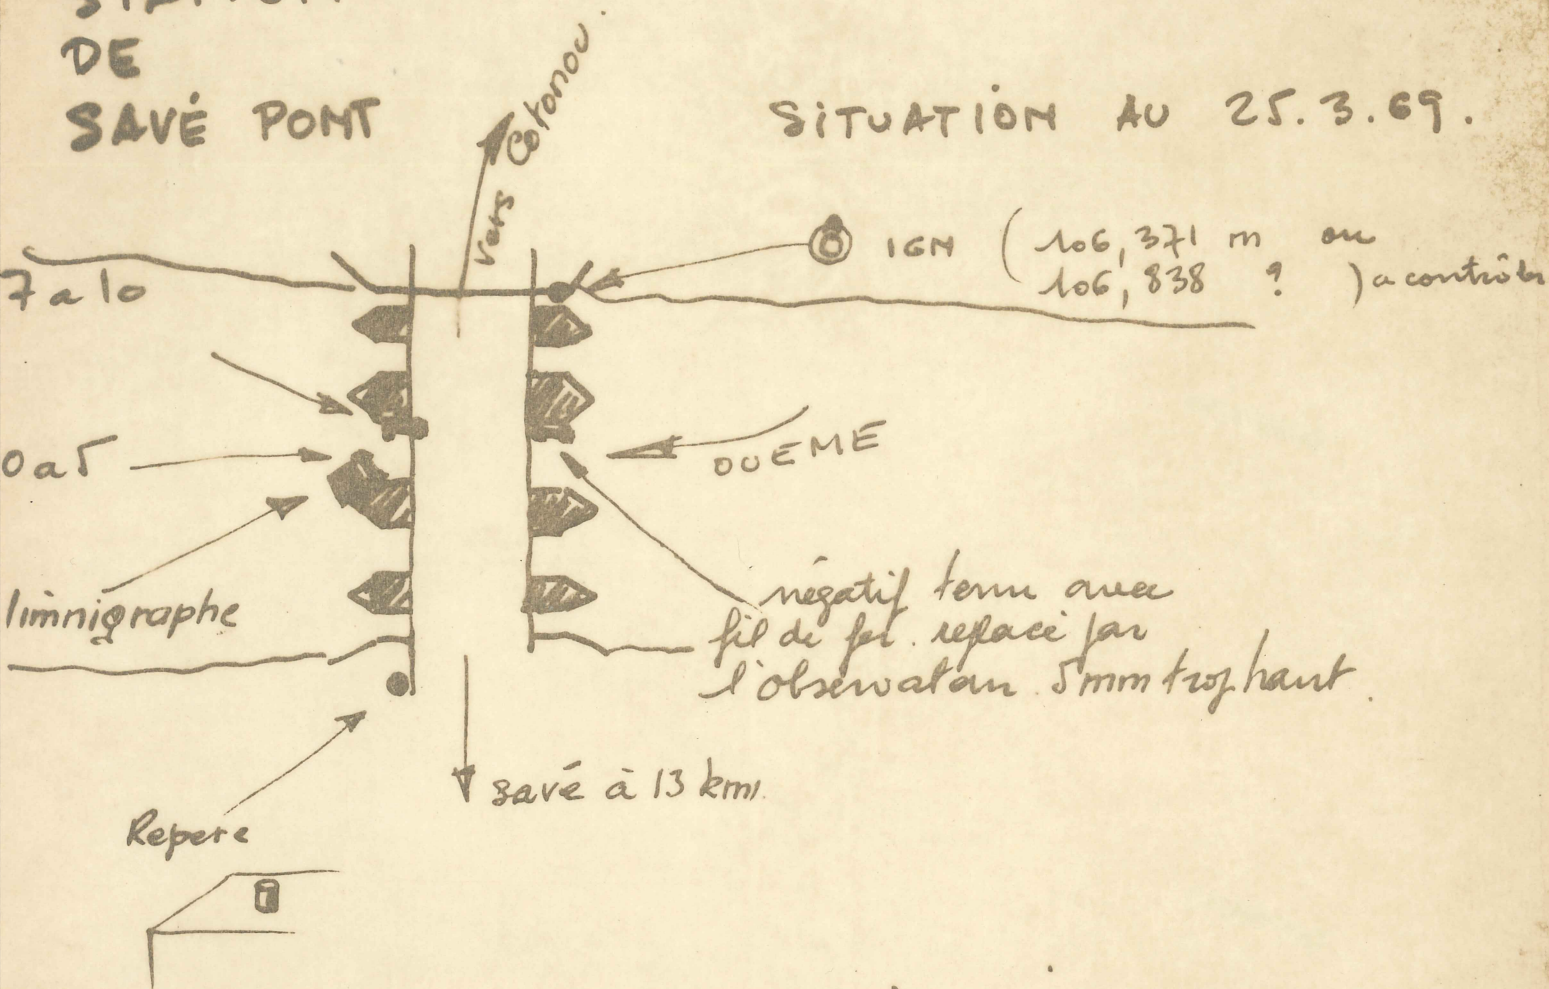 DE
SAVÉ PONT
SITUATION AU 25.3.69.
vers Cotonou
IGN ( 106,371 m ou
106,838 ? ) a contrôler
7 a 10
0 a 5
OUEME
limnigraphe
négatif tenu avec
fil de fer. replacé par
l'observateur 5mm trop haut.
savé à 13 km.
Repere